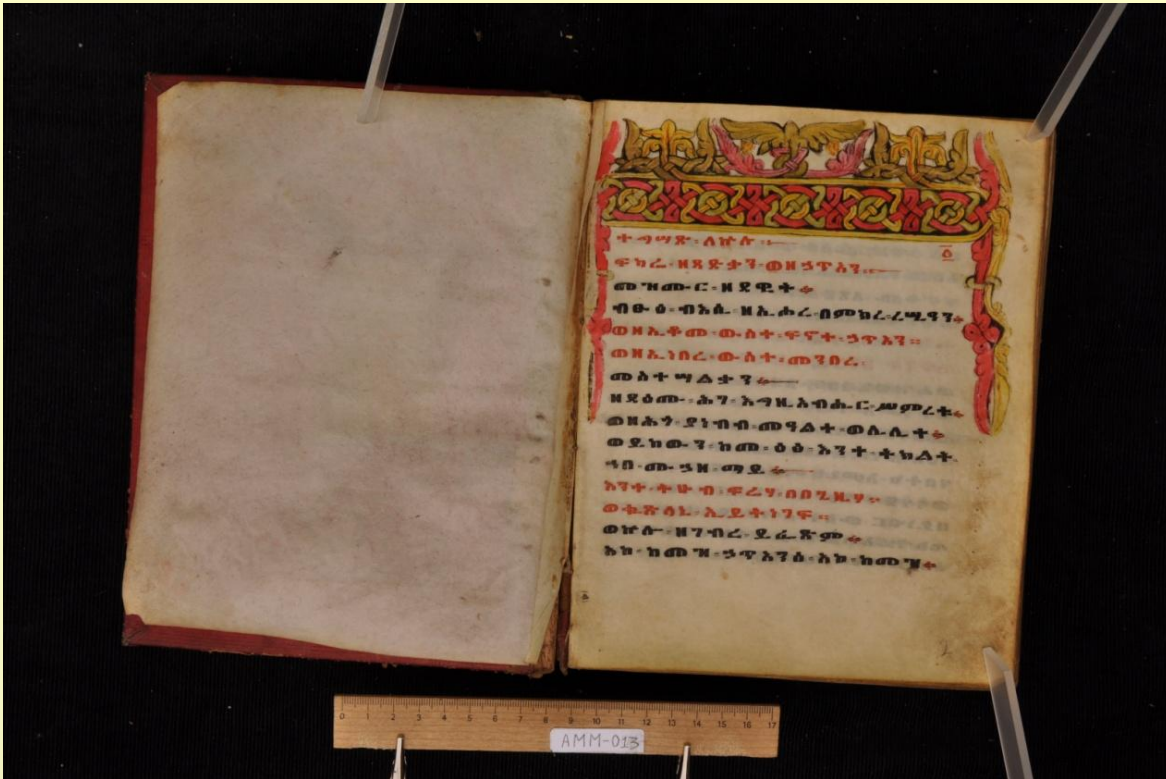 ተግሣጽ፡ ለኵሉ ።
፩
ፍካሬ፡ ዘጻድቃን፡ ወዘኃጥአን።
መዝሙር፡ ዘዳዊት።
ብፁዕ፡ ብእሲ፡ ዘኢሖረ፡ በምክረ፡ ረሢዓን።
ወዘኢቆመ፡ ውስተ፡ ፍኖተ፡ ኃጥአን።
ወዘኢነበረ፡ ውስተ፡ መንበረ፡
መስተሣልቃን።
ዘዳዕሙ፡ ሕገ፡ እግዚአብሔር፡ ሥምረቱ።
ወዘሕጎ፡ ያነብብ፡ መዓልተ፡ ወሌሊተ።
ወይከውን፡ ከመ፡ ዕፅ፡ እንተ፡ ትክልት፡
ኀበ፡ ሙኃዘ፡ ማይ።
እንተ፡ ትሁብ፡ ፍሬሃ፡ በበጊዜሃ።
ወቈጽላኒ፡ ኢይትነገፍ።
ወኵሎ፡ ዘገብረ፡ ይፌጽም።
አኮ፡ ከመዝ፡ ኃጥአንሰ፡ አኮ፡ ከመዝ።
2
0 1 2 3 4 5 6 7 8 9 10 11 12 13 14 15 16 17
AMM-013